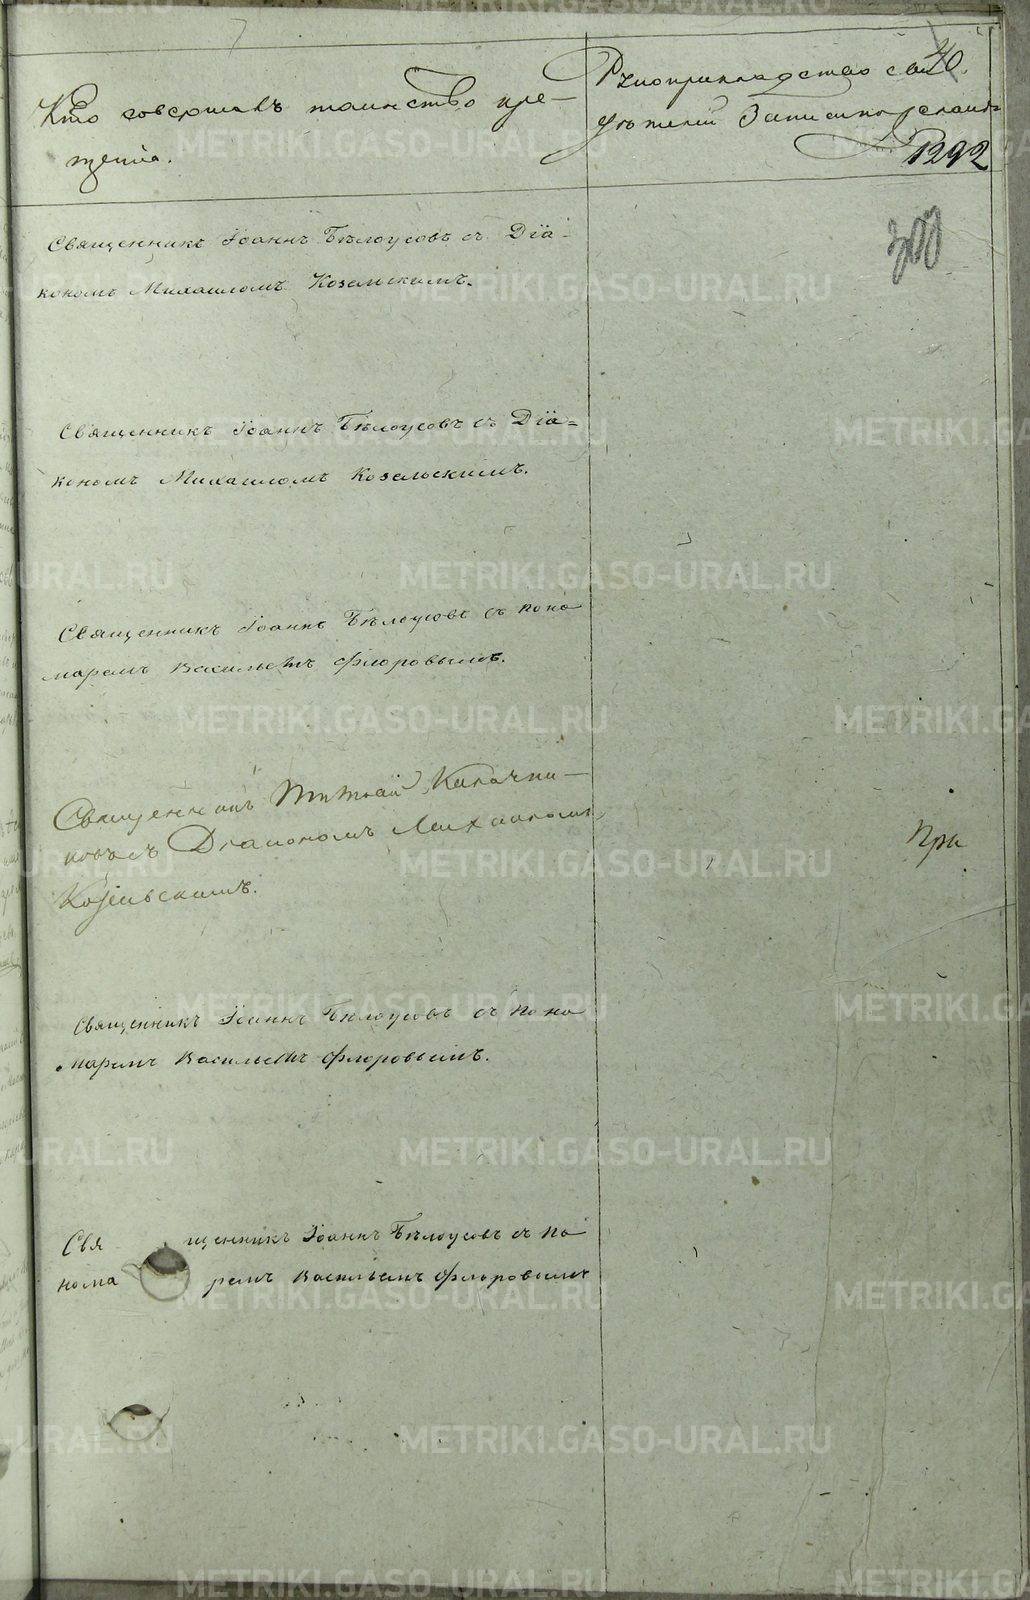 40.
Кто совершалъ таинство кре-
щенія.
Рукоприкладство сви
дѣтелей записи по желанію
1292
300
Священникъ Іоаннъ Бѣлоусовъ съ Діа-
кономъ Михаиломъ Козельскимъ.
Священникъ Іоаннъ Бѣлоусовъ съ Діа-
кономъ Михаиломъ Козельскимъ.
Священникъ Іоаннъ Бѣлоусовъ съ поно
маремъ Васильемъ Флоровымъ.
Священникъ Калачни-
ковъ съ Діакономъ Михаиломъ
Козельскимъ.
При
Священникъ Іоаннъ Бѣлоусовъ съ поно
маремъ Васильемъ Флоровымъ.
Священникъ Іоаннъ Бѣлоусовъ съ по
номаремъ Васильемъ Флоровымъ
METRIKI.GASO-URAL.RU